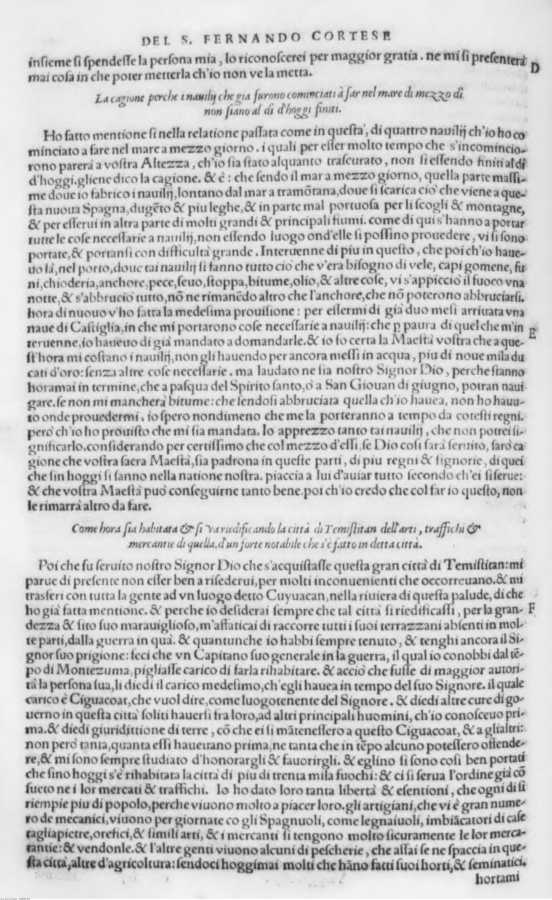 DEL S. FERNANDO CORTESE
insieme si spendesse la persona mia, lo riconoscerei per maggior gratia. ne mi si presenterà
mai cosa in che poter metterla ch'io non ve la metta.
D
La cagione perche i nauilij che già furono cominciati à far nel mare di mezzo dì
non siano al dì d'hoggi finiti.
Ho fatto mentione si nella relatione passata come in questa, di quattro nauilij ch'io ho co
minciato a fare nel mare a mezzo giorno. i quali per esser molto tempo che s'incomincio-
rono parerà a vostra Altezza, ch'io sia stato alquanto trascurato, non si essendo finiti al dì
d'hoggi. gliene dico la cagione. & è: che sendo il mar a mezzo giorno, quella parte massi-
me doue io fabrico i nauilij, lontano dal mar a tramōtana, doue si scarica ciò che viene a que-
sta nuoua Spagna, dugēto & piu leghe, & in parte mal portuosa per li scogli & montagne,
& per esserui in altra parte di molti grandi & principali fiumi. come di qui s'hanno a portar
tutte le cose necessarie a nauilij, non essendo luogo ond'elle si possino prouedere, vi si sono
portate, & portansi con difficultà grande. Interuenne di piu in questo, che poi ch'io haue-
uo là, nel porto, doue tai nauilij si fanno tutto ciò che v'era bisogno di vele, capi gomene, fu
ni, chioderia, anchore, pece, seuo, stoppa, bitume, olio, & altre cose, vi s'appiccio il fuoco vna
notte, & s'abbruciò tutto, nō ne rimanēdo altro che l'anchore, che nō poterono abbruciarsi.
hora di nuouo v'ho fatta la medesima prouisione: per essermi di già duo mesi arriuata vna
naue di Castiglia, in che mi portarono cose necessarie a nauilij: che p paura di quel che m'in
E
teruenne, io haueuo di già mandato a domandarle. & io so certa la Maestà vostra che a que-
st'hora mi costano i nauilij, non gli hauendo per ancora messi in acqua, piu di noue mila du
cati d'oro: senza altre cose necessarie. ma laudato ne sia nostro Signor Dio, perche stanno
horamai in termine, che a pasqua del Spirito santo, ò a San Giouan di giugno, potran naui-
gare. se non mi mancherà bitume: che sendosi abbruciata quella ch'io hauea, non ho hauu-
to onde prouedermi. io spero nondimeno che me la porteranno a tempo da cotesti regni.
però ch'io ho prouisto che mi sia mandata. Io apprezzo tanto tai nauilij, che non potrei si-
gnificarlo. considerando per certissimo che col mezzo d'essi, se Dio così sarà seruito, farò ca
gione che vostra sacra Maestà, sia padrona in queste parti, di piu regni & signorie, di quei
che sin hoggi si sanno nella natione nostra. piaccia a lui d'auiar tutto secondo ch'ei si serue:
& che vostra Maestà può conseguirne tanto bene. poi ch'io credo che col far io questo, non
le rimarrà altro da fare.
Come hora sia habitata & si và riedificando la città di Temistitan dell'arti, traffichi &
mercantie di quella, d'un forte notabile che s'è fatto in detta città.
Poi che fu seruito nostro Signor Dio che s'acquistasse questa gran città di Temistitan: mi
parue di presente non esser ben a risederui, per molti inconuenienti che occorreuano. & mi
trasferi con tutta la gente ad vn luogo detto Cuyuacan, nella riuiera di questa palude, di che
ho già fatta mentione. & perche io desiderai sempre che tal città si riedificassi, per la gran-
F
dezza & sito suo marauiglioso, m'affaticai di raccorre tutti i suoi terrazzani absenti in mol-
te parti, dalla guerra in quà. & quantunche io habbi sempre tenuto, & tenghi ancora il Si-
gnor suo prigione: feci che vn Capitano suo generale in la guerra, il qual io conobbi dal tē-
po di Montezuma, pigliasse carico di farla rihabitare. & acciò che fusse di maggior autori-
tà la persona sua, li diedi il carico medesimo, ch'egli hauea in tempo del suo Signore. il quale
carico è Ciguacoat, che vuol dire, come luogotenente del Signore. & diedi altre cure di go-
uerno in questa città soliti hauersi fra loro, ad altri principali huomini, ch'io conosceuo pri-
ma. & diedi giuriditione di terre, cō che ei si māteneſſero a questo Ciguacoat, & a gli altri:
non però tanta, quanta essi haueuano prima, ne tanta che in tēpo alcuno potessero offende-
re, & mi sono sempre studiato d'honorargli & fauorirgli. & eglino si sono così ben portati
che sino hoggi s'è rihabitata la città di piu di trenta mila fuochi: & ci si serua l'ordine già cō
sueto ne i lor mercati & traffichi. Io ho dato loro tanta libertà & esentioni, che ogni dì si
riempie piu di popolo, perche viuono molto a piacer loro. gli artigiani, che vi è gran nume-
ro de mecanici, viuono per giornate co gli Spagnuoli, come legnaiuoli, imbiācatori di case
tagliapietre, orefici, & simili arti, & i mercanti si tengono molto sicuramente le lor merca-
tantie: & vendonle. & l'altre genti viuono alcuni di pescherie, che assai se ne spaccia in que-
sta città, altre d'agricoltura: sendoci hoggimai molti che hāno fatti suoi horti, & seminatici.
hortami